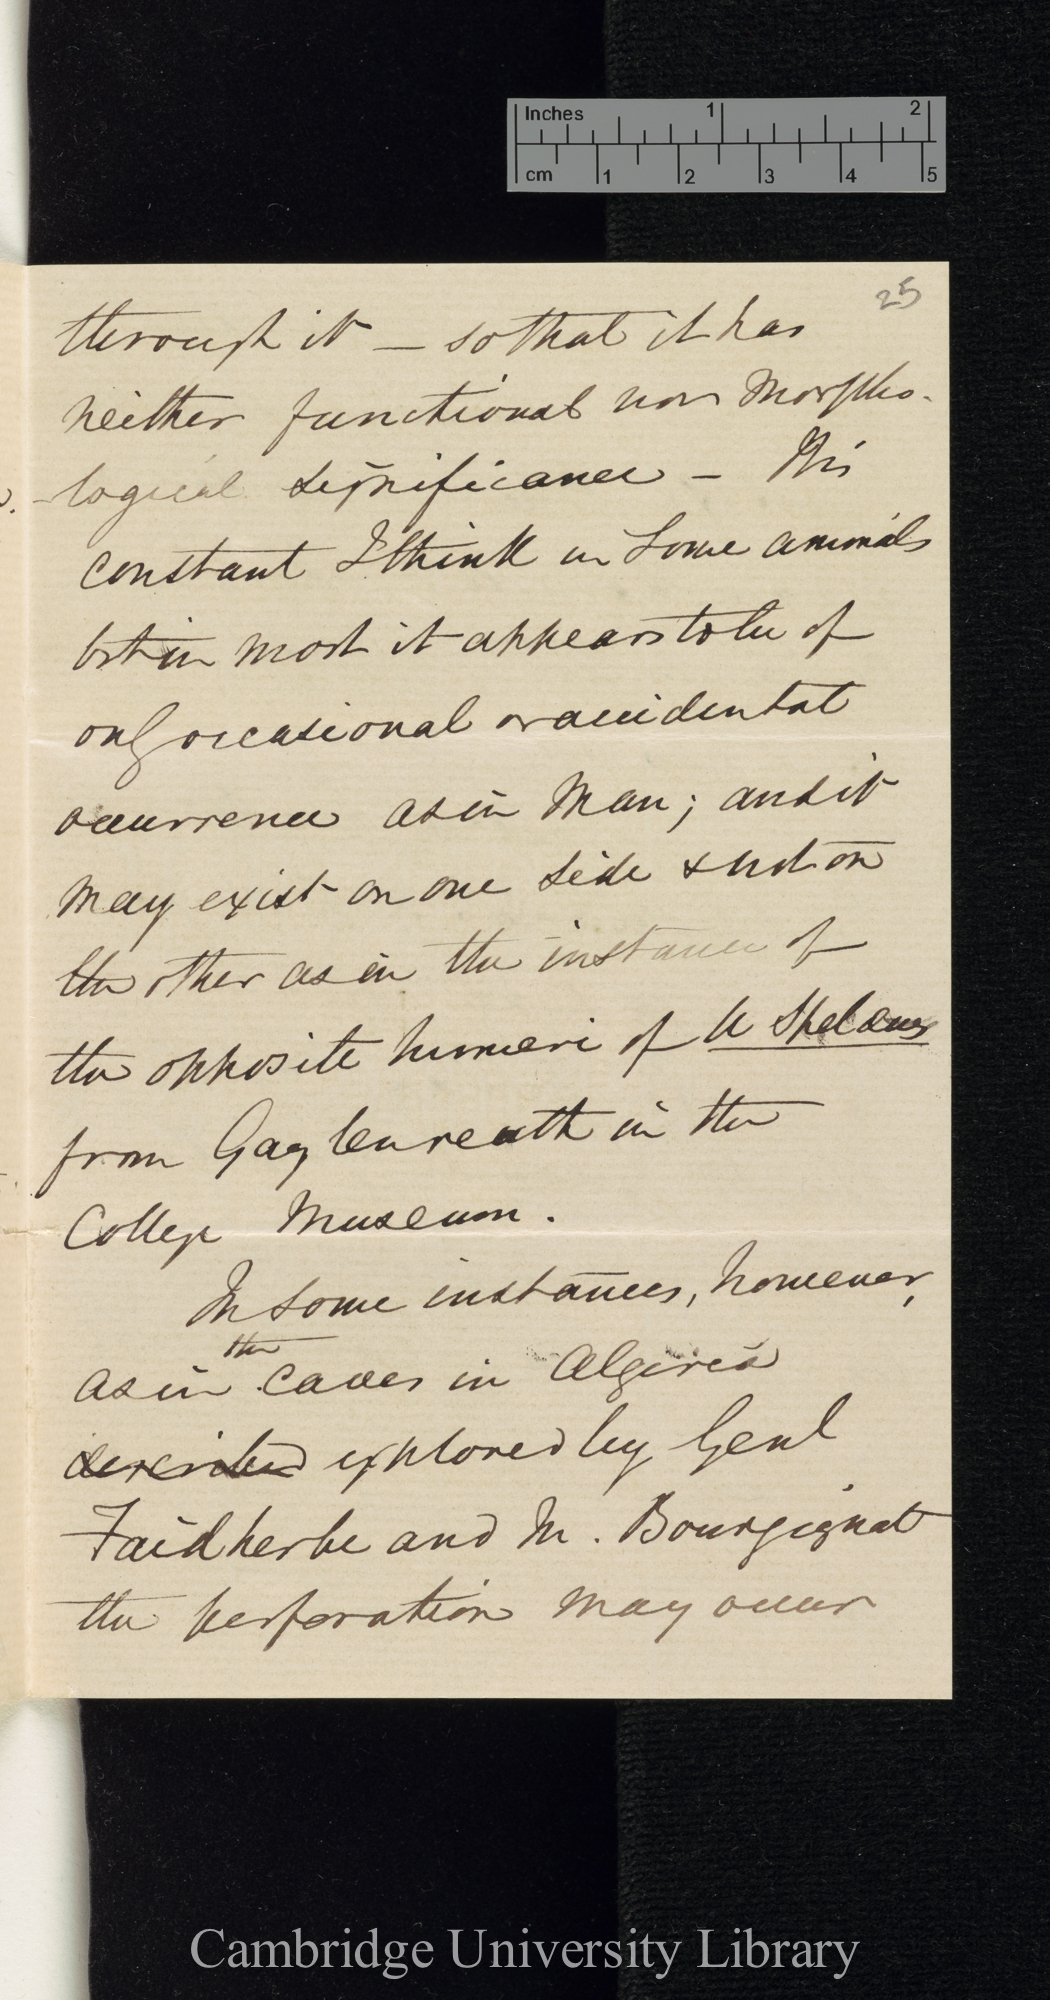 Inches 1 2
cm 1 2 3 4 5
25
through it — so that it has
neither functional nor morpho-
-logical significance — It is
constant I think in some animals
but in most it appears to be of
only occasional or accidental
occurrence as in Man; and it
may exist on one side & not on
the other as in the instance of
the opposite humeri of U Spelæus
from Gaylenreuth in the
College Museum.
In some instances, however,
the
as in caves in Algeria
described explored by Genl
Faidherbe and M. Bourgignat
the perforation may occur
Cambridge University Library